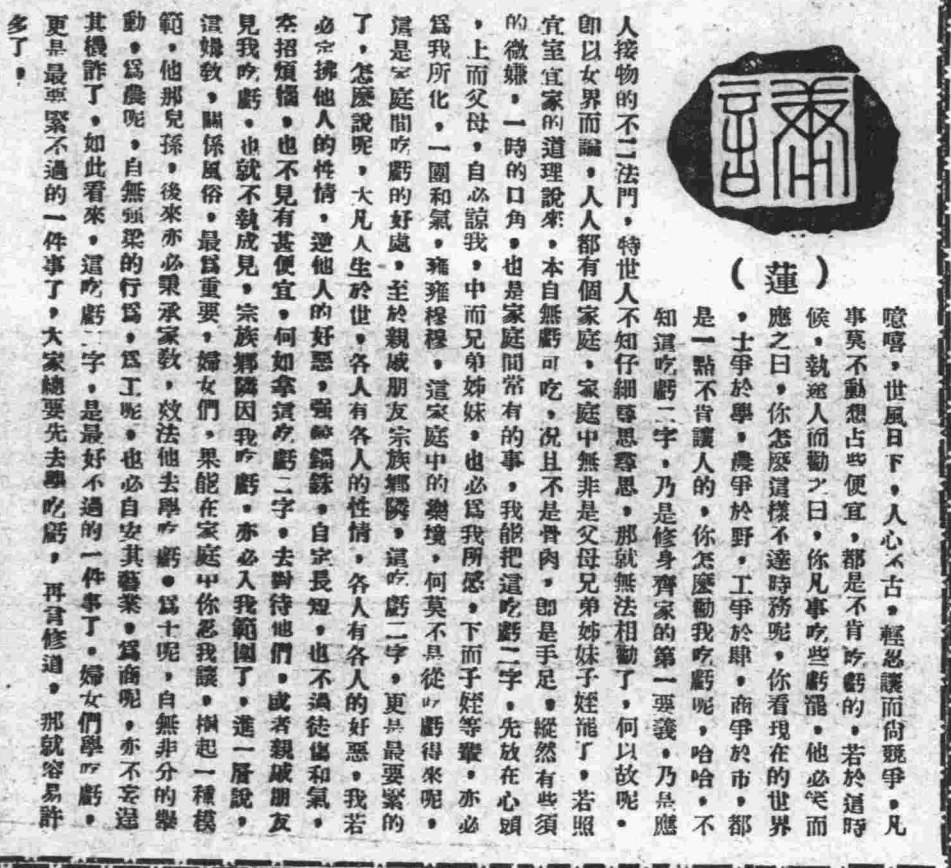 (蓮)
噫嘻，世風日下，人心不古，輕忍讓而尙競爭，凡
事莫不動想占些便宜，都是不肯吃虧的，若於這時
候，執途人而勸之曰，你凡事吃些虧罷，他必笑而
應之曰，你怎麼這樣不達時務呢，你看現在的世界
，士爭於學，農爭於野，工爭於肆，商爭於市，都
是一點不肯讓人的，你怎麼勸我吃虧呢，哈哈，不
知這吃虧二字，乃是修身齊家的第一要義，乃是應
人接物的不二法門，特世人不知仔細尋思尋思，那就無法相勸了，何以故呢。
卽以女界而論，人人都有個家庭，家庭中無非是父母兄弟姊妹子姪罷了，若照
宜室宜家的道理說來，本自無虧可吃，况且不是骨肉，卽是手足，縱然有些須
的微嫌，一時的口角，也是家庭間常有的事，我能把這吃虧二字，先放在心頭
，上而父母，自必諒我，中而兄弟姊妹，也必爲我所感，下而子姪等輩，亦必
爲我所化，一團和氣，雍雍穆穆，這家庭中的樂境，何莫不是從吃虧得來呢，
這是家庭間吃虧的好處，至於親戚朋友宗族鄉隣，這吃虧二字，更是最要緊的
了，怎麼說呢，大凡人生於世，各人有各人的性情，各人有各人的好惡，我若
必定拂他人的性情，逆他人的好惡，强較錙銖，自定長短，也不過徒傷和氣，
空招煩惱，也不見有甚便宜，何如拿這吃虧二字，去對待他們，或者親戚朋友
見我吃虧，也就不執成見，宗族鄉隣因我吃虧，亦必入我範圍了，進一層說，
這婦敎，關係風俗，最爲重要，婦女們，果能在家庭中你忍我讓，樹起一種模
範，他那兒孫，後來亦必秉承家敎，效法他去學吃虧。爲士呢，自無非分的舉
動，爲農呢，自無强梁的行爲，爲工呢，也必自安其藝業，爲商呢，亦不妄逞
其機詐了，如此看來，這吃虧二字，是最好不過的一件事了，婦女們學吃虧，
更是最要緊不過的一件事了，大家總要先去學吃虧，再言修道，那就容易許
多了。